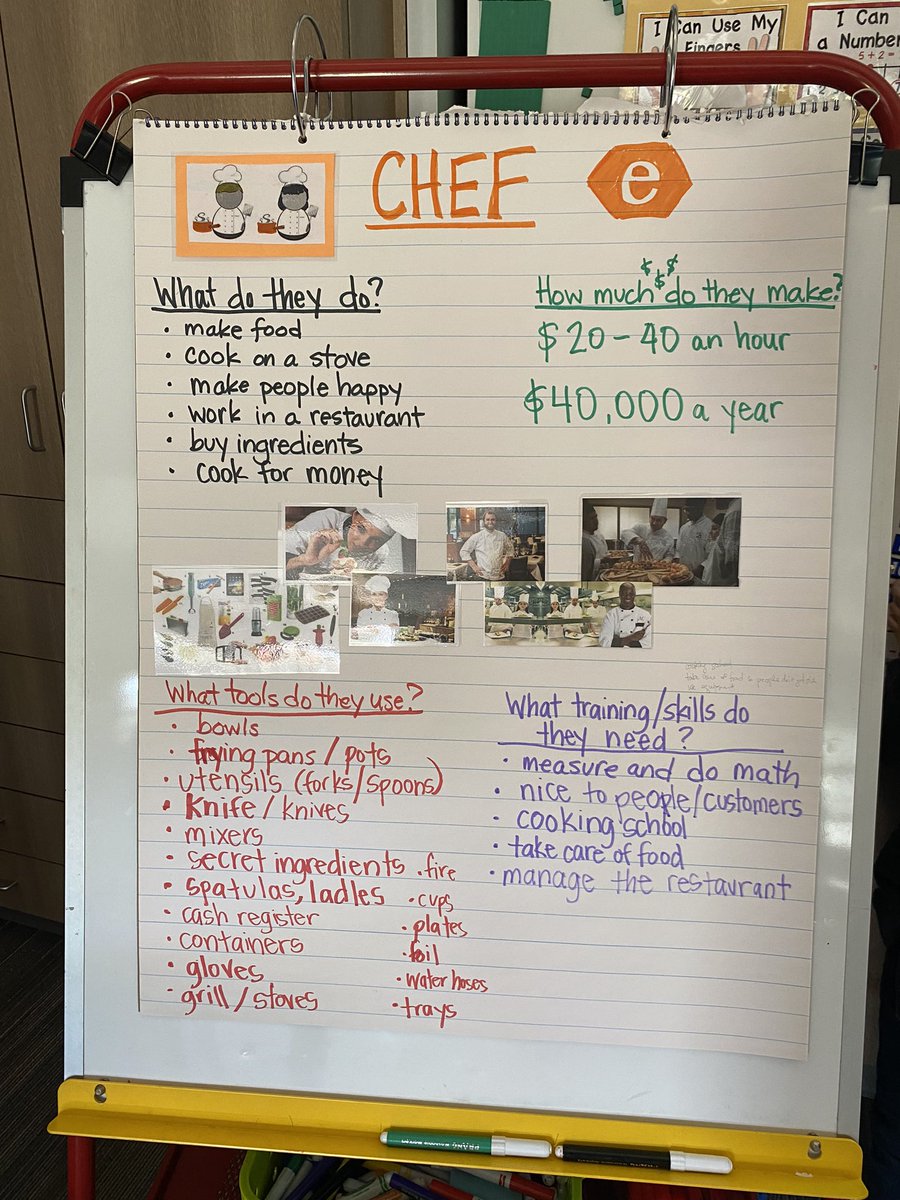 I Can Use My
Fingers
I Can
a Number
5 + 2 =
CHEF
e
What do they do?
• make food
• cook on a stove
• make people happy
• work in a restaurant
• buy ingredients
• cook for money
$ $ $
How much do they make?
$20-40 an hour
$40,000 a year
What tools do they use?
• bowls
• frying pans / pots
• utensils (forks/spoons)
• knife / knives
• mixers
• secret ingredients
• spatulas, ladles
• cash register
• containers
• gloves
• grill / stoves
• fire
• cups
• plates
• foil
• water hoses
• trays
cooking school
take care of food
What training/skills do
they need?
• measure and do math
• nice to people/customers
• cooking school
• take care of food
• manage the restaurant